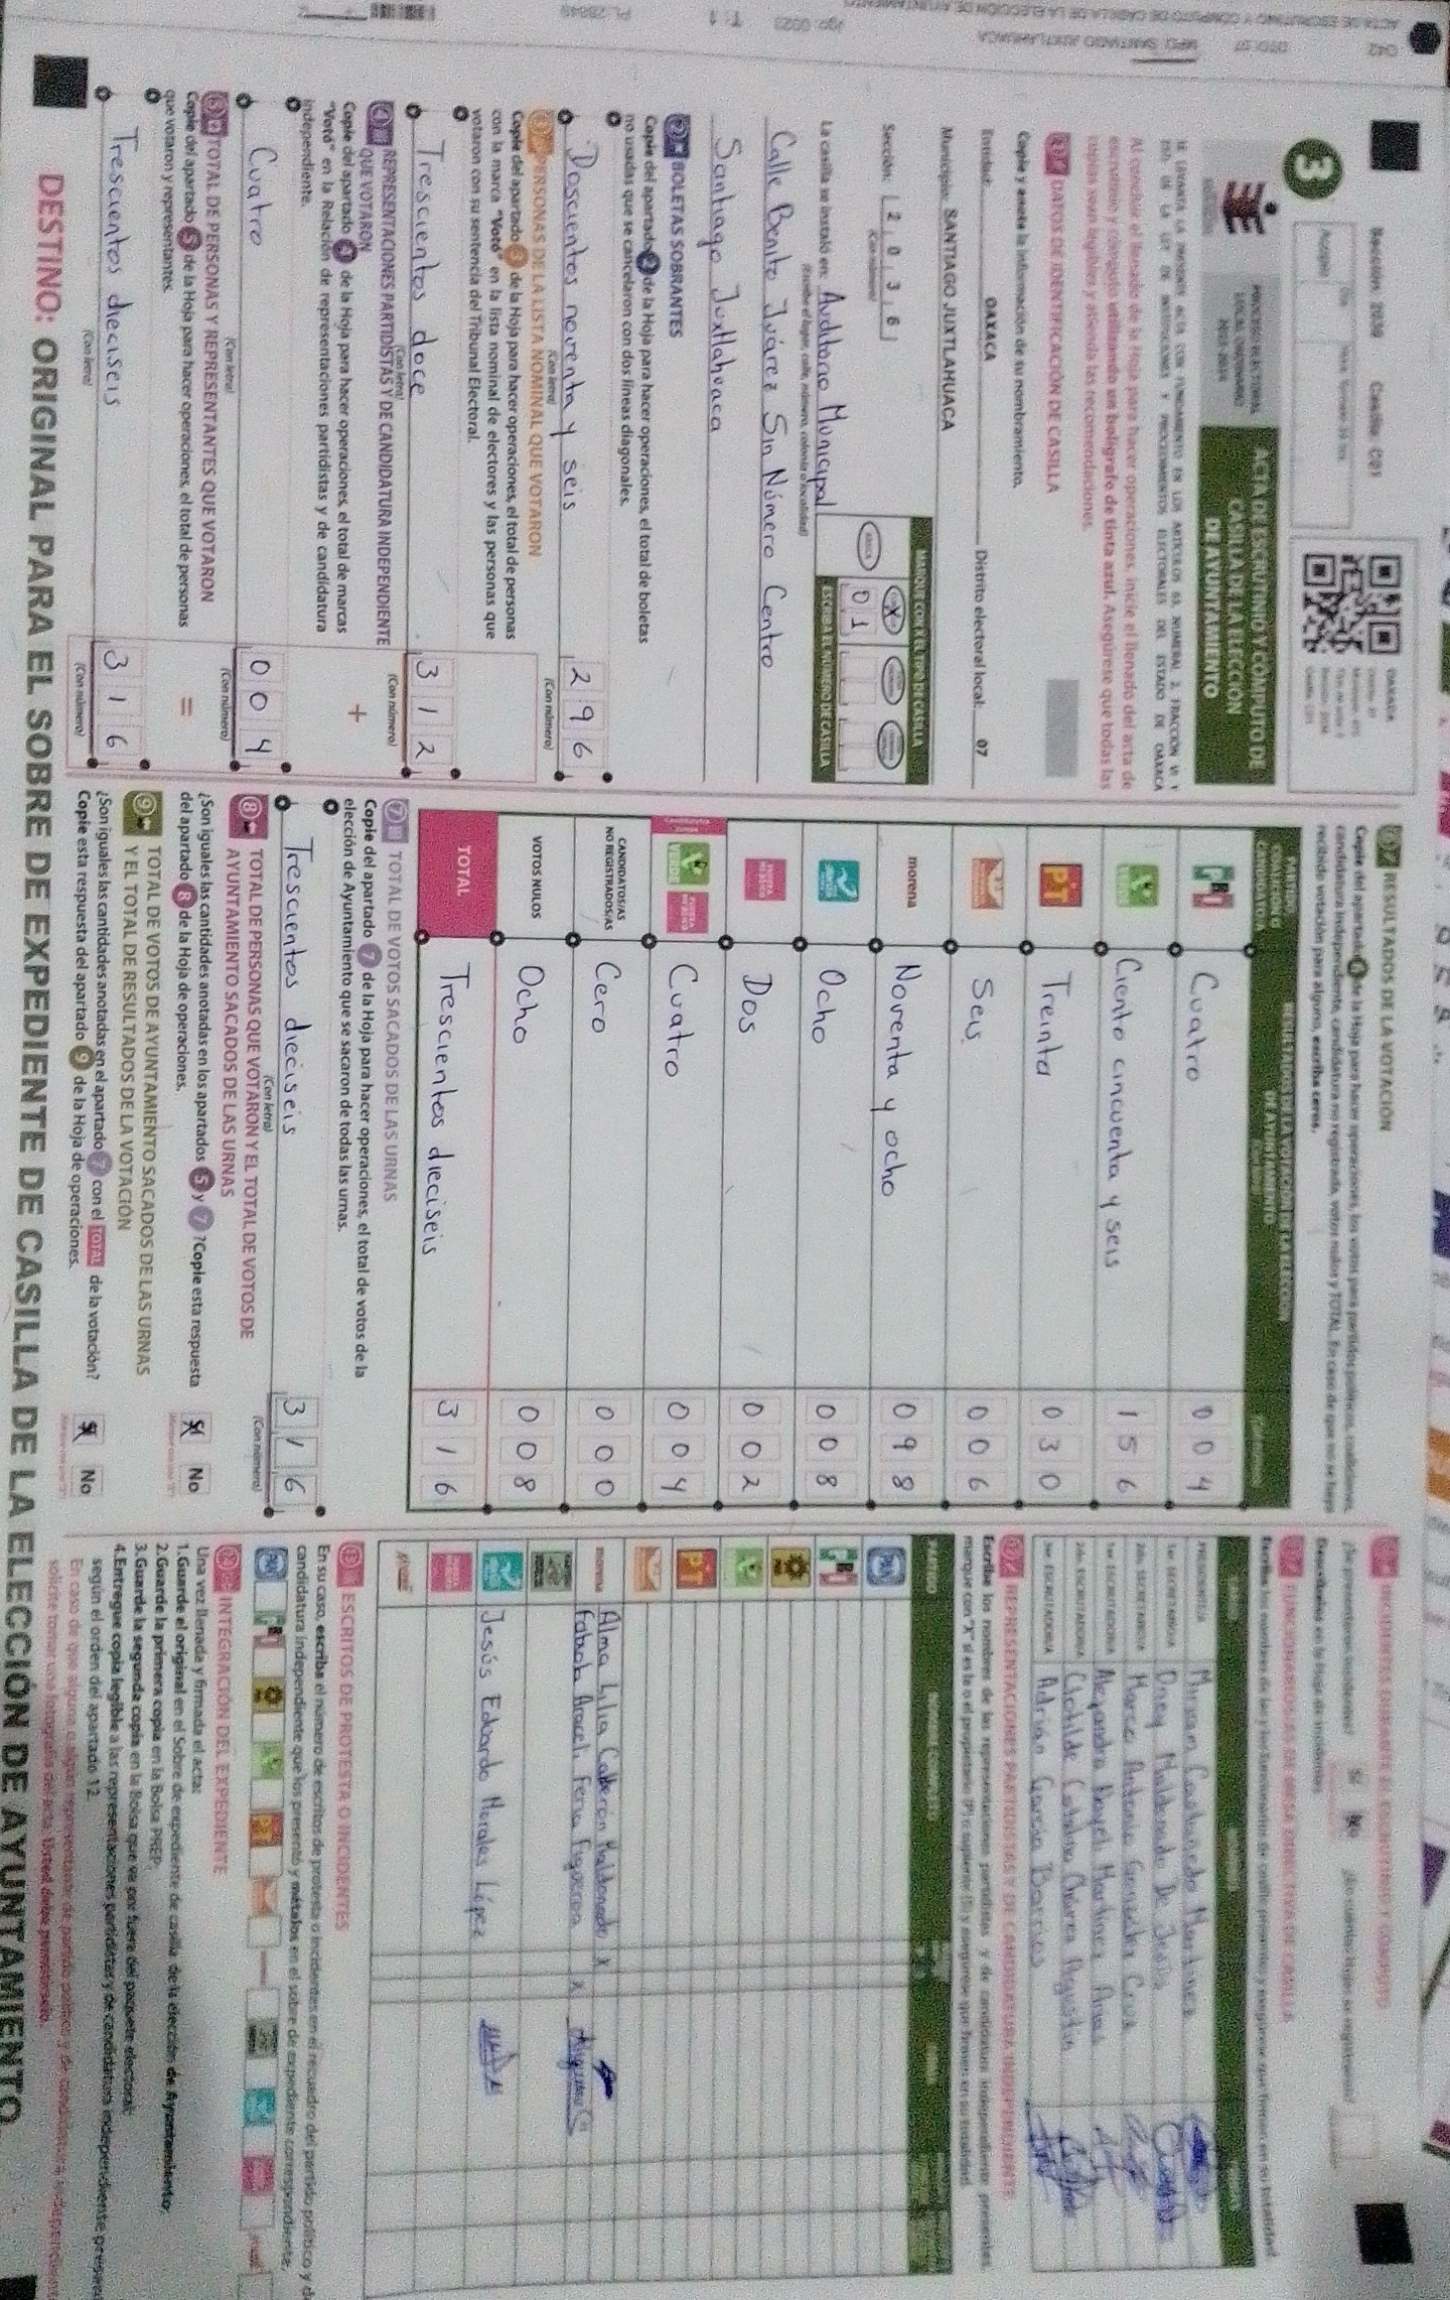 Sección: 2036 Casilla: C01
3
PROCESO ELECTORAL
LOCAL ORDINARIO
2023-2024
ACTA DE ESCRUTINIO Y CÓMPUTO DE
CASILLA DE LA ELECCIÓN
DE AYUNTAMIENTO
Al concluir el llenado de la Hoja para hacer operaciones, inicie el llenado del acta de
escrutinio y cómputo utilizando un bolígrafo de tinta azul. Asegúrese que todas las
copias sean legibles y atienda las recomendaciones.
1 DATOS DE IDENTIFICACIÓN DE CASILLA
Copie y anote la información de su nombramiento.
Entidad: OAXACA Distrito electoral local: 07
Municipio: SANTIAGO JUXTLAHUACA
Sección: 2 0 3 6
(Con número)
MARQUE CON X EL TIPO DE CASILLA
ESCRIBA EL NÚMERO DE CASILLA
0 1
La casilla se instaló en: Auditorio Municipal
(Escriba el lugar, calle, número, colonia o localidad)
Calle Benito Juárez Sin Número Centro
Santiago Juxtlahuaca
2 BOLETAS SOBRANTES
Copie del apartado 2 de la Hoja para hacer operaciones, el total de boletas
no usadas que se cancelaron con dos líneas diagonales.
Doscientos noventa y seis 2 9 6
(Con letra) (Con número)
3 PERSONAS DE LA LISTA NOMINAL QUE VOTARON
Copie del apartado 3 de la Hoja para hacer operaciones, el total de personas
con la marca "Votó" en la lista nominal de electores y las personas que
votaron con su sentencia del Tribunal Electoral.
Trescientos doce 3 1 2
(Con letra) (Con número)
4 REPRESENTACIONES PARTIDISTAS Y DE CANDIDATURA INDEPENDIENTE
QUE VOTARON
Copie del apartado 4 de la Hoja para hacer operaciones, el total de marcas
"Votó" en la Relación de representaciones partidistas y de candidatura
independiente.
+
Cuatro 0 0 4
(Con letra) (Con número)
5 TOTAL DE PERSONAS Y REPRESENTANTES QUE VOTARON
Copie del apartado 5 de la Hoja para hacer operaciones, el total de personas
que votaron y representantes.
=
Trescientos dieciseis 3 1 6
(Con letra) (Con número)
RESULTADOS DE LA VOTACIÓN
Copie del apartado 6 de la Hoja para hacer operaciones, los votos para partidos políticos, coaliciones,
candidatura independiente, candidatura no registrada, votos nulos y TOTAL. En caso de que no se haya
recibido votación para alguno, escriba ceros.
PARTIDO,
COALICIÓN O
CANDIDATO/A
RESULTADOS DE LA VOTACIÓN DE LA ELECCIÓN
DE AYUNTAMIENTO
PRI Cuatro 0 0 4
VERDE Ciento cincuenta y seis 1 5 6
PT Treinta 0 3 0
Seis 0 0 6
morena Noventa y ocho 0 9 8
Ocho 0 0 8
Dos 0 0 2
VERDE Cuatro 0 0 4
CANDIDATOS/AS
NO REGISTRADOS/AS Cero 0 0 0
VOTOS NULOS Ocho 0 0 8
TOTAL Trescientos dieciseis 3 1 6
7 TOTAL DE VOTOS SACADOS DE LAS URNAS
Copie del apartado 7 de la Hoja para hacer operaciones, el total de votos de la
elección de Ayuntamiento que se sacaron de todas las urnas.
Trescientos dieciseis 3 1 6
(Con letra) (Con número)
8 TOTAL DE PERSONAS QUE VOTARON Y EL TOTAL DE VOTOS DE
AYUNTAMIENTO SACADOS DE LAS URNAS
¿Son iguales las cantidades anotadas en los apartados 5 y 7? Copie esta respuesta
del apartado 8 de la Hoja de operaciones.
Sí No
9 TOTAL DE VOTOS DE AYUNTAMIENTO SACADOS DE LAS URNAS
Y EL TOTAL DE RESULTADOS DE LA VOTACIÓN
¿Son iguales las cantidades anotadas en el apartado 7 con el TOTAL de la votación?
Copie esta respuesta del apartado 9 de la Hoja de operaciones.
Sí No
INCIDENTES DURANTE EL ESCRUTINIO Y CÓMPUTO
PRESIDENTE/A Miriam Castanedo Martinez
1er. SECRETARIO/A Dney Maldonado De Jesús
2do. SECRETARIO/A Marco Antonio Gonzalez Cruz
1er. ESCRUTADOR/A Alejandra Nayeli Martinez
2do. ESCRUTADOR/A Clotilde Catalina Chávez Agustin
3er. ESCRUTADOR/A Adrian García Barrios
REPRESENTACIONES PARTIDISTAS Y DE CANDIDATURA INDEPENDIENTE
Escriba los nombres de las representaciones partidistas y de candidatura independiente presentes,
marque con "X" si es la o el propietario (P) o suplente (S) y asegúrese que firmen en su totalidad.
PARTIDO NOMBRE COMPLETO
PAN
PRI
PRD
VERDE
PT
morena Alma Lilia Calderón Maldonado X
Fabiola Araceli Feria Figueroa X
Jesús Edoardo Morales López
ESCRITOS DE PROTESTA O INCIDENTES
En su caso, escriba el número de escritos de protesta o incidentes en el recuadro del partido político y de
candidatura independiente que los presentó y métalos en el sobre de expediente correspondiente.
INTEGRACIÓN DEL EXPEDIENTE
Una vez llenada y firmada el acta:
1.Guarde el original en el Sobre de expediente de casilla de la elección de Ayuntamiento.
2.Guarde la primera copia en la Bolsa PREP.
3.Guarde la segunda copia en la Bolsa que va por fuera del paquete electoral.
4.Entregue copia legible a las representaciones partidistas y de candidatura independiente presentes
según el orden del apartado 12.
En caso de que alguna o algún representante de partido político y de candidatura independiente
solicite tomar una fotografía del acta. Usted debe permitírselo.
DESTINO: ORIGINAL PARA EL SOBRE DE EXPEDIENTE DE CASILLA DE LA ELECCIÓN DE AYUNTAMIENTO